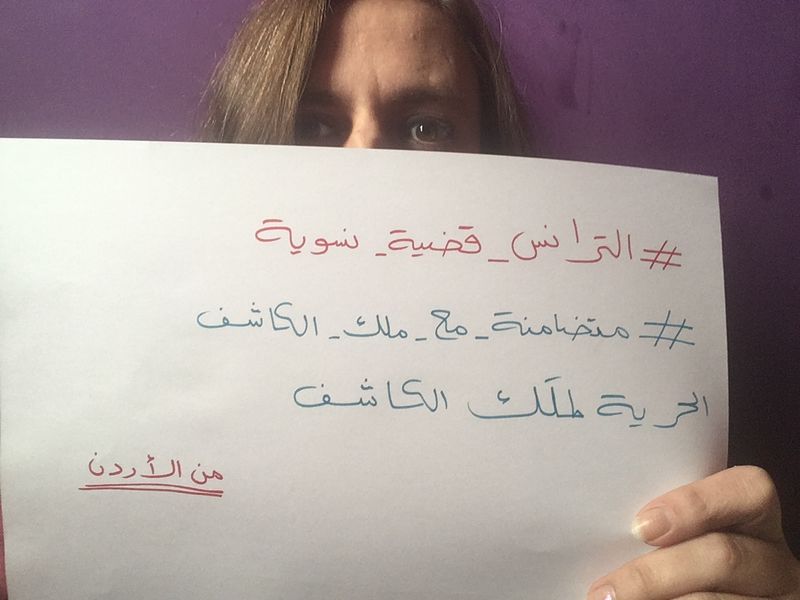 #الترانس_قضية_نسوية
#متضامنة_مع_ملك_الكاشف
الحرية لملَك الكاشف
من الأردن